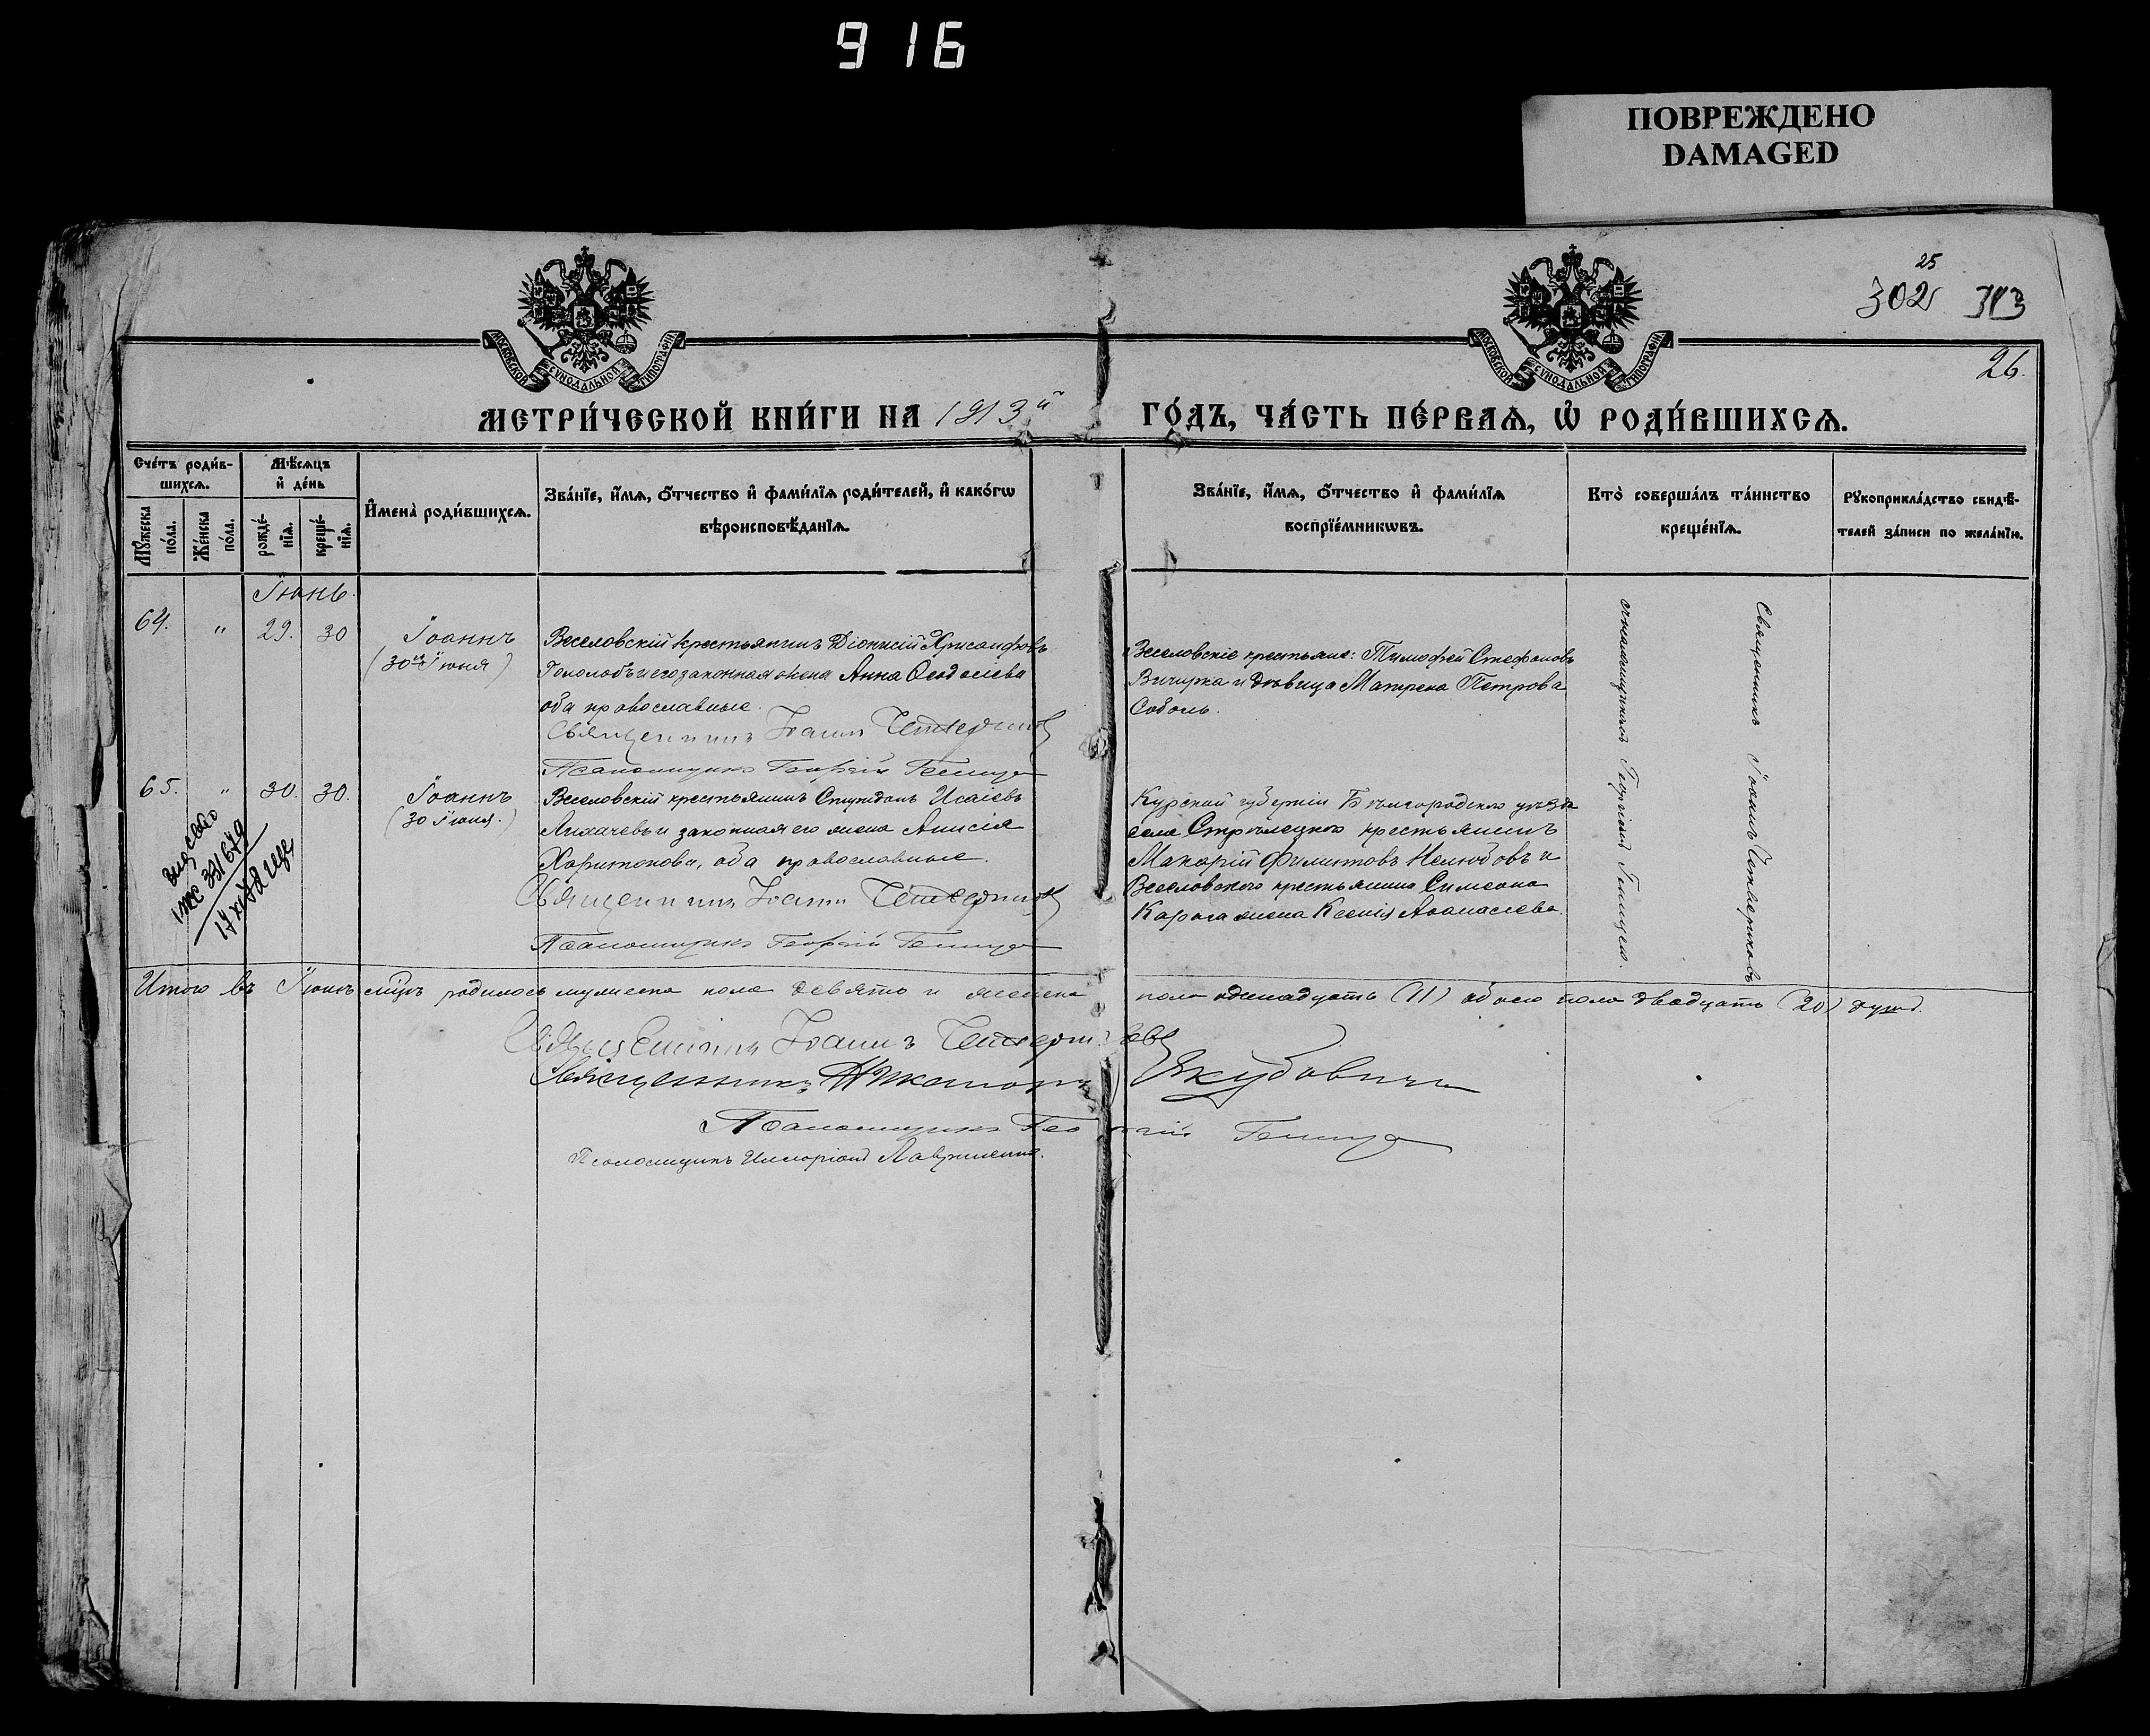 916
ПОВРЕЖДЕНО
DAMAGED
25
302 313
26.
МОСКОВСКОЙ СУНОДАЛЬНОЙ ТИПОГРАФІИ
МОСКОВСКОЙ СУНОДАЛЬНОЙ ТИПОГРАФІИ
МЕТРИ́ЧЕСКОЙ КНИ́ГИ НА 1913й ГО́ДЪ, ЧА́СТЬ ПЕ́РВАѦ, Ѡ҆ РОДИ́ВШИХСѦ.
Сче́тъ роди́в-
шихсѧ.
Мꙋ́жеска
по́ла.
Же́нска
по́ла.
Мѣ́сѧцъ
и҆ де́нь
рожде́-
нїѧ.
креще́-
нїѧ.
И҆мена̀ роди́вшихсѧ.
Зва́нїе, и҆́мѧ, ѻ҆́тчество и҆ фами́лїѧ роди́телей, и҆ како́гѡ
вѣроисповѣ́данїѧ.
Зва́нїе, и҆́мѧ, ѻ҆́тчество и҆ фами́лїѧ
воспрїе́мникѡвъ.
Кто̀ соверша́лъ та́инство
креще́нїѧ.
Рꙋкоприкла́дство свидѣ́-
телей за́писи по жела́нїю.
Іюнь.
64. " 29. 30
Іоаннъ
(30го Іюня)
Веселовскій крестьянинъ Діонисій Хрисанфовъ
Гололобъ и его законная жена Анна Ѳеодосіева
оба православные.
Священникъ Іоаннъ Четвериковъ
Псаломщикъ Георгій
Веселовскіе крестьяне: Тимофей Стефановъ
Вичирка и дѣвица Матрена Петрова
Соболь.
65. " 30. 30.
Іоаннъ
(30 Іюня.)
Веселовскій крестьянинъ Исаіевъ
Лихачевъ и законная его жена Анисія
Харитонова, оба православные.
Священникъ Іоаннъ Четвериковъ
Псаломщикъ Георгій
Курской губерніи Бѣлгородскаго уѣзда
села Стрѣлецкаго крестьянинъ
Макарій Филиповъ Нелюбовъ и
Веселовскаго крестьянина Симеона
жена Ксенія Аѳанасіева.
Священникъ Іоаннъ Четвериковъ
съ псаломщикомъ Георгіемъ
331679
Итого въ Іюнѣ мѣсяцѣ родилось мужеска пола девять и женска пола одинадцать (11) обоего пола двадцать (20) душъ.
Священникъ Іоаннъ Четвериковъ
Священникъ Никаноръ Якубовичъ
Псаломщикъ Георгій
Псаломщикъ Иларіонъ